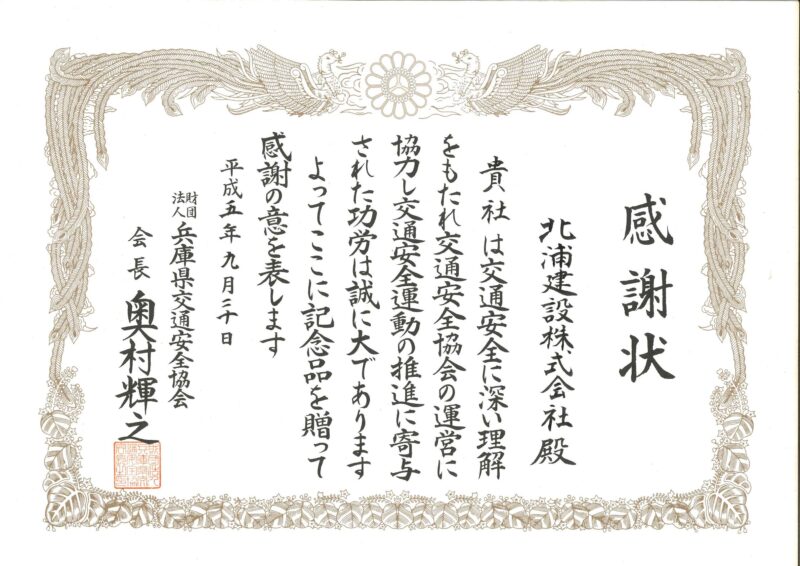 感謝状
北浦建設株式会社殿
貴社は交通安全に深い理解
をもたれ交通安全協会の運営に
協力し交通安全運動の推進に寄与
された功労は誠に大であります
よってここに記念品を贈って
感謝の意を表します
平成五年九月三十日
財団法人兵庫県交通安全協会
会長奥村輝之